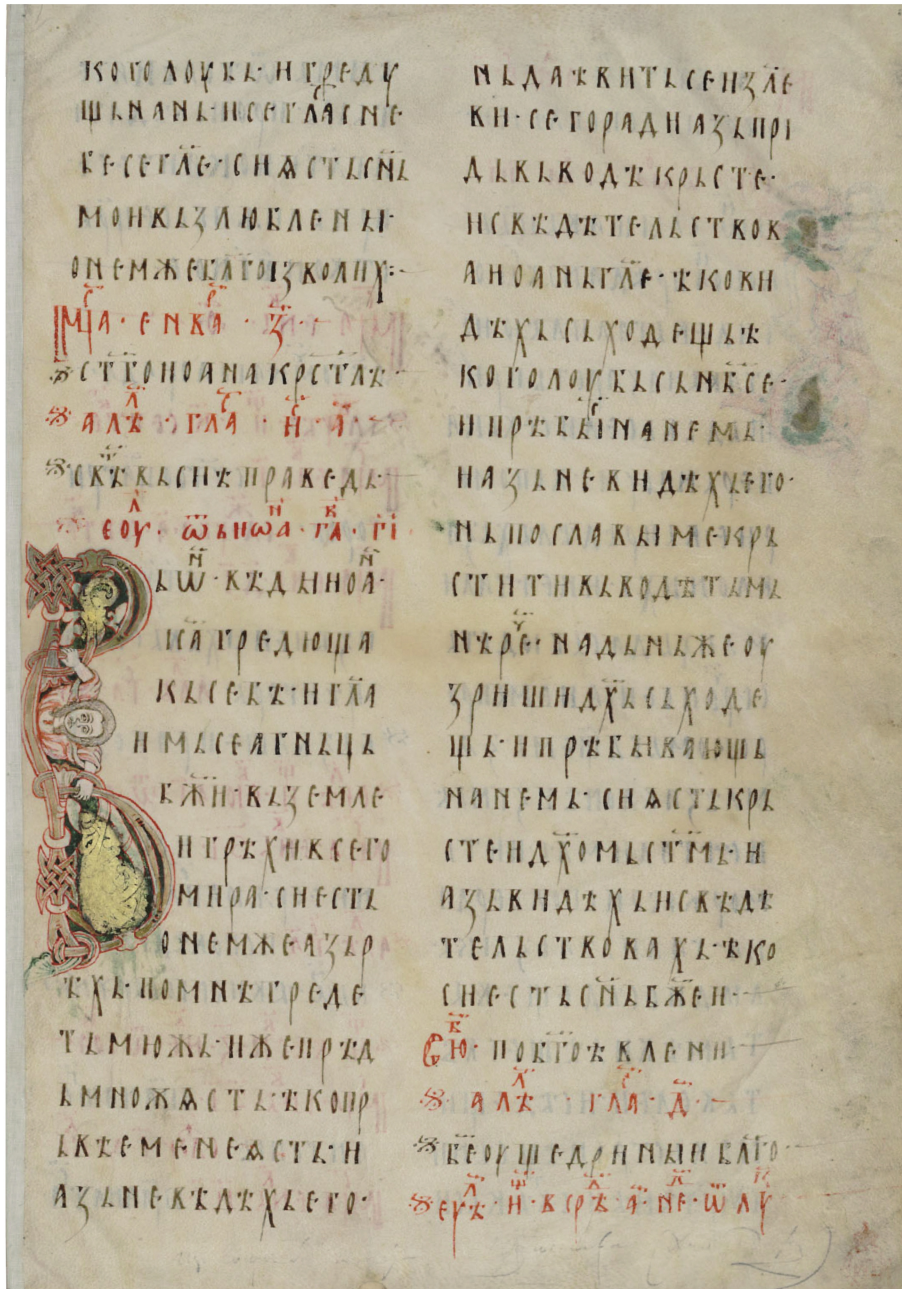 КОГОЛОУБЬ· И ГРЕДУ
ЩЬ НАНЬ· И СЕ ГЛ҃АС НЕ
БЕСЕ ГЛ҃Е· СИ ѤСТЬ СН҃Ь
МОИ ВЬЗЛЮБЛЕНЫ·
О НЕМЖЕ БЛ҃ГОІЗВОЛИХ꙼:~
МЦ҃А· ЕНВА҃Р· З҃·
СТ҃ГО ИОАНА КРСТ҃ЛѢ·
АЛѢ҃Л· ГЛА҃С· И҃· А҃·
СВѢ҃Т ВЬСИѢ ПРАВЕДЬ·
ЕОУ҃Л· Ѿ ЬИѠА҃Н· ГА҃В· Г҃І
Ь Ѡ҃Н· ВѢДЫ ИОА҃Н·
И҃СА ГРЕДЮЩА
КЬ СЕБѢ· И ГЛ҃А
ИМЬ СЕ АГНЬЦЬ
БЖ҃И· ВЬЗЕМЛЕ
И ГРѢХИ ВСЕГО
МИРА· СИ ЕСТЬ
О НЕМЖЕ АЗЬ Р
ѢХЬ· ПО МНѢ ГРЕДЕ
ТЬ МЮЖЬ· ИЖЕ ПРѢД
Ь МНОЖ ѤСТЬ· ѢКО ПР
ЬВѢЕ МЕНЕ ѤСТЬ· И
АЗЬ НЕ ВѢДѢХЬ ЕГО·
НЬ ДА ѢВИТЬ СЕ ИЗЛ҃Е
ВИ· СЕГО РАДИ АЗЬ ПРІ
ДЬ ВЬ ВОДѢ КРЬСТЕ·
И СВѢДѢТЕЛЬСТВОВ
А ИОАНЬ ГЛ҃Е· ѢКО ВИ
ДѢХЬ СЬХОДЕЩЬ Ѣ
КО ГОЛОУБЬ СЬ НБ҃СЕ·
И ПРѢБЫ҃С НА НЕМЬ·
И АЗЬ НЕ ВИДѢХЬ ЕГО·
НЬ ПОСЛАВЫ МЕ КРЬ
СТИТИ ВЬ ВОДѢ ТЬ МЬ
НѢ РЕ҃Ч· НАДЬ НЬЖЕ ОУ
ЗРИШИ ДХ҃Ь СЬХОДЕ
ЩЬ· И ПРѢБЫВАЮЩЬ
НА НЕМЬ· СИ ѤСТЬ КРЬ
СТЕИ ДХ҃ОМЬ СТ҃МЬ· И
АЗЬ ВИДѢХЬ И СВѢДѢ
ТЕЛЬСТВОВАХЬ· ѢКО
СИ ЕСТЬ СН҃Ь БЖ҃ЕИ·
СЮ҃Б· ПО БГ҃ОѢВЛЕНИ
АЛѢ҃Л· ГЛА҃С· Д҃·
БЕ҃ ОУЩЕДРИ НЫ И БЛ҃ГО·
ЕУѢ҃Л· И҃Ш· В СРѢ҃Д· А҃· НЕ҃Л· Ѿ ЛУ҃К